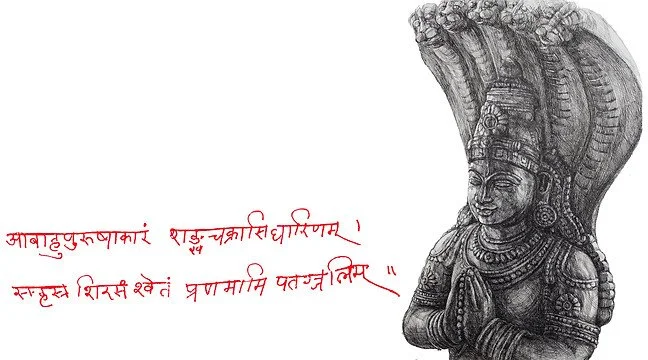 आबाहुपुरुषाकारं शङ्खचक्रासिधारिणम् ।
सहस्र शिरसं श्वेतं प्रणमामि पतञ्जलिम् ॥